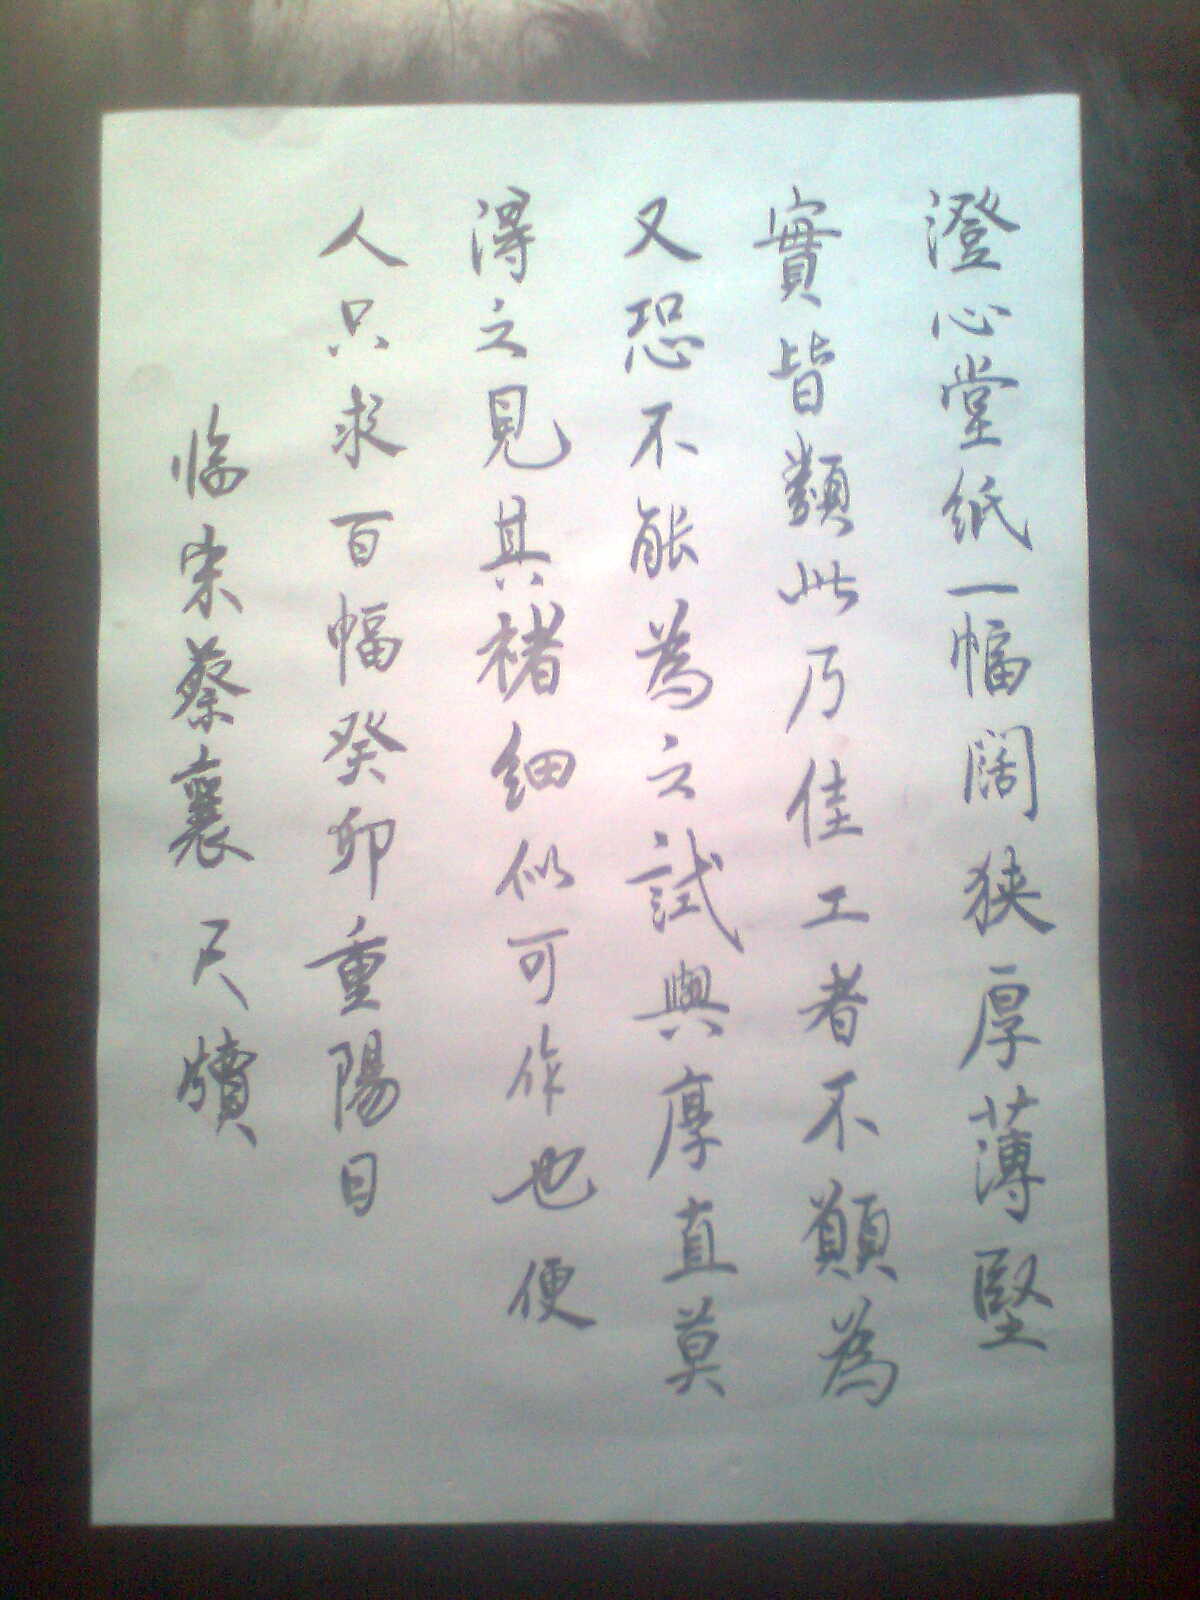 澄心堂纸一幅阔狭厚薄堅
實皆類此乃佳工者不願為
又恐不能為之試與厚直莫
得之見其楮细似可作也便
人只求百幅癸卯重陽日
临宋蔡襄尺牘